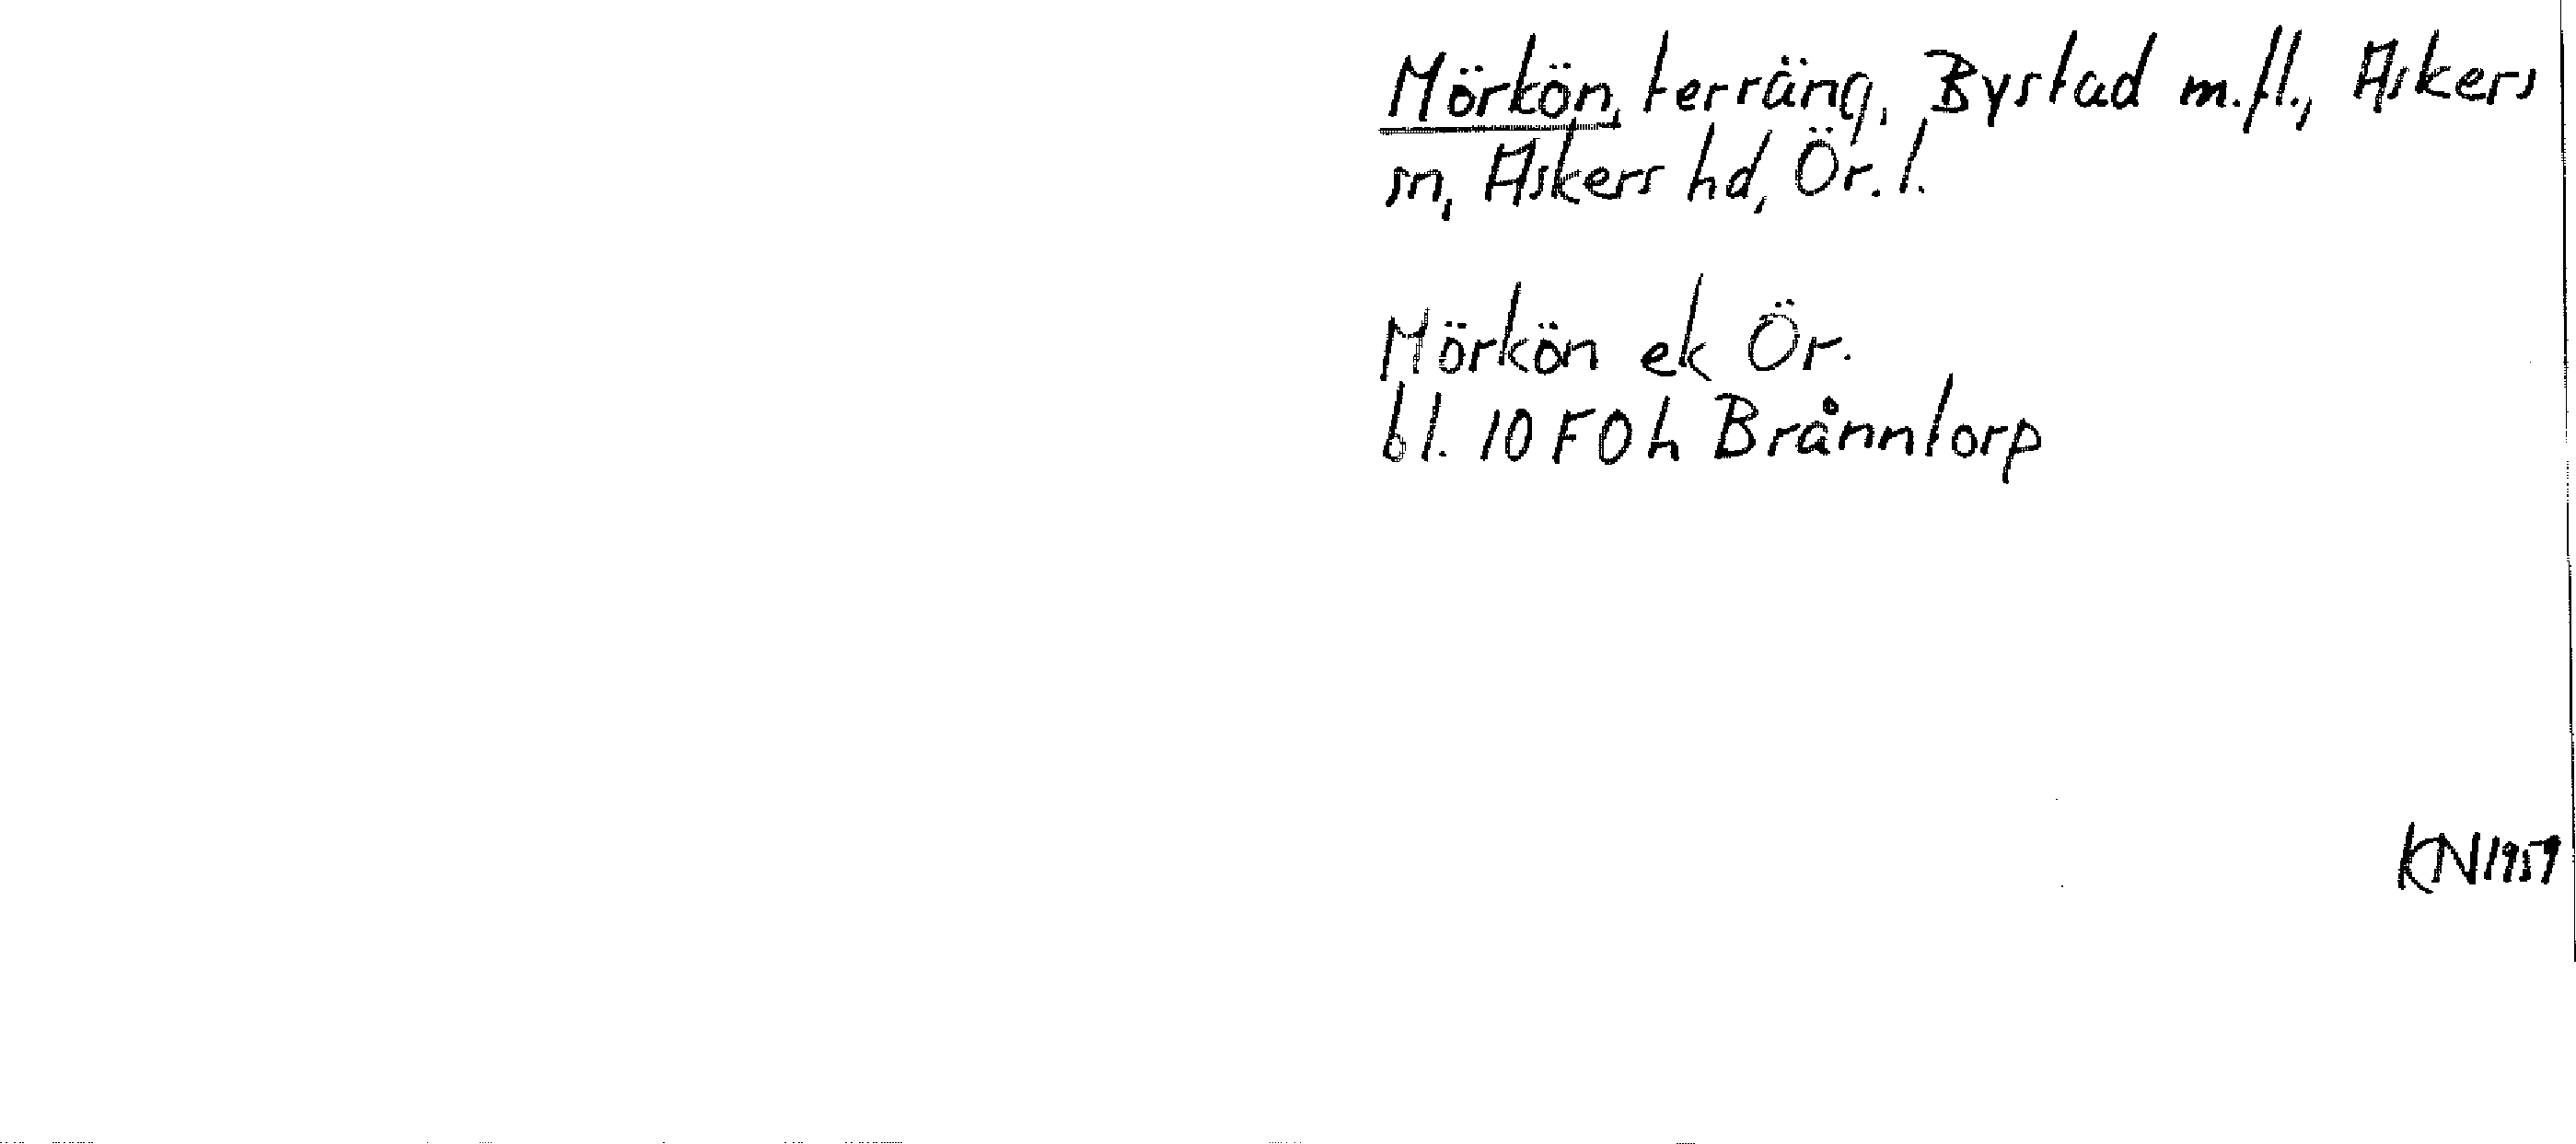 Mörkön, terräng, Bystad m.fl., Askers
sn, Askers hd, Ör. l.
Mörkön ek Ör.
bl. 10 F 0 h Brånntorp
KN 1959